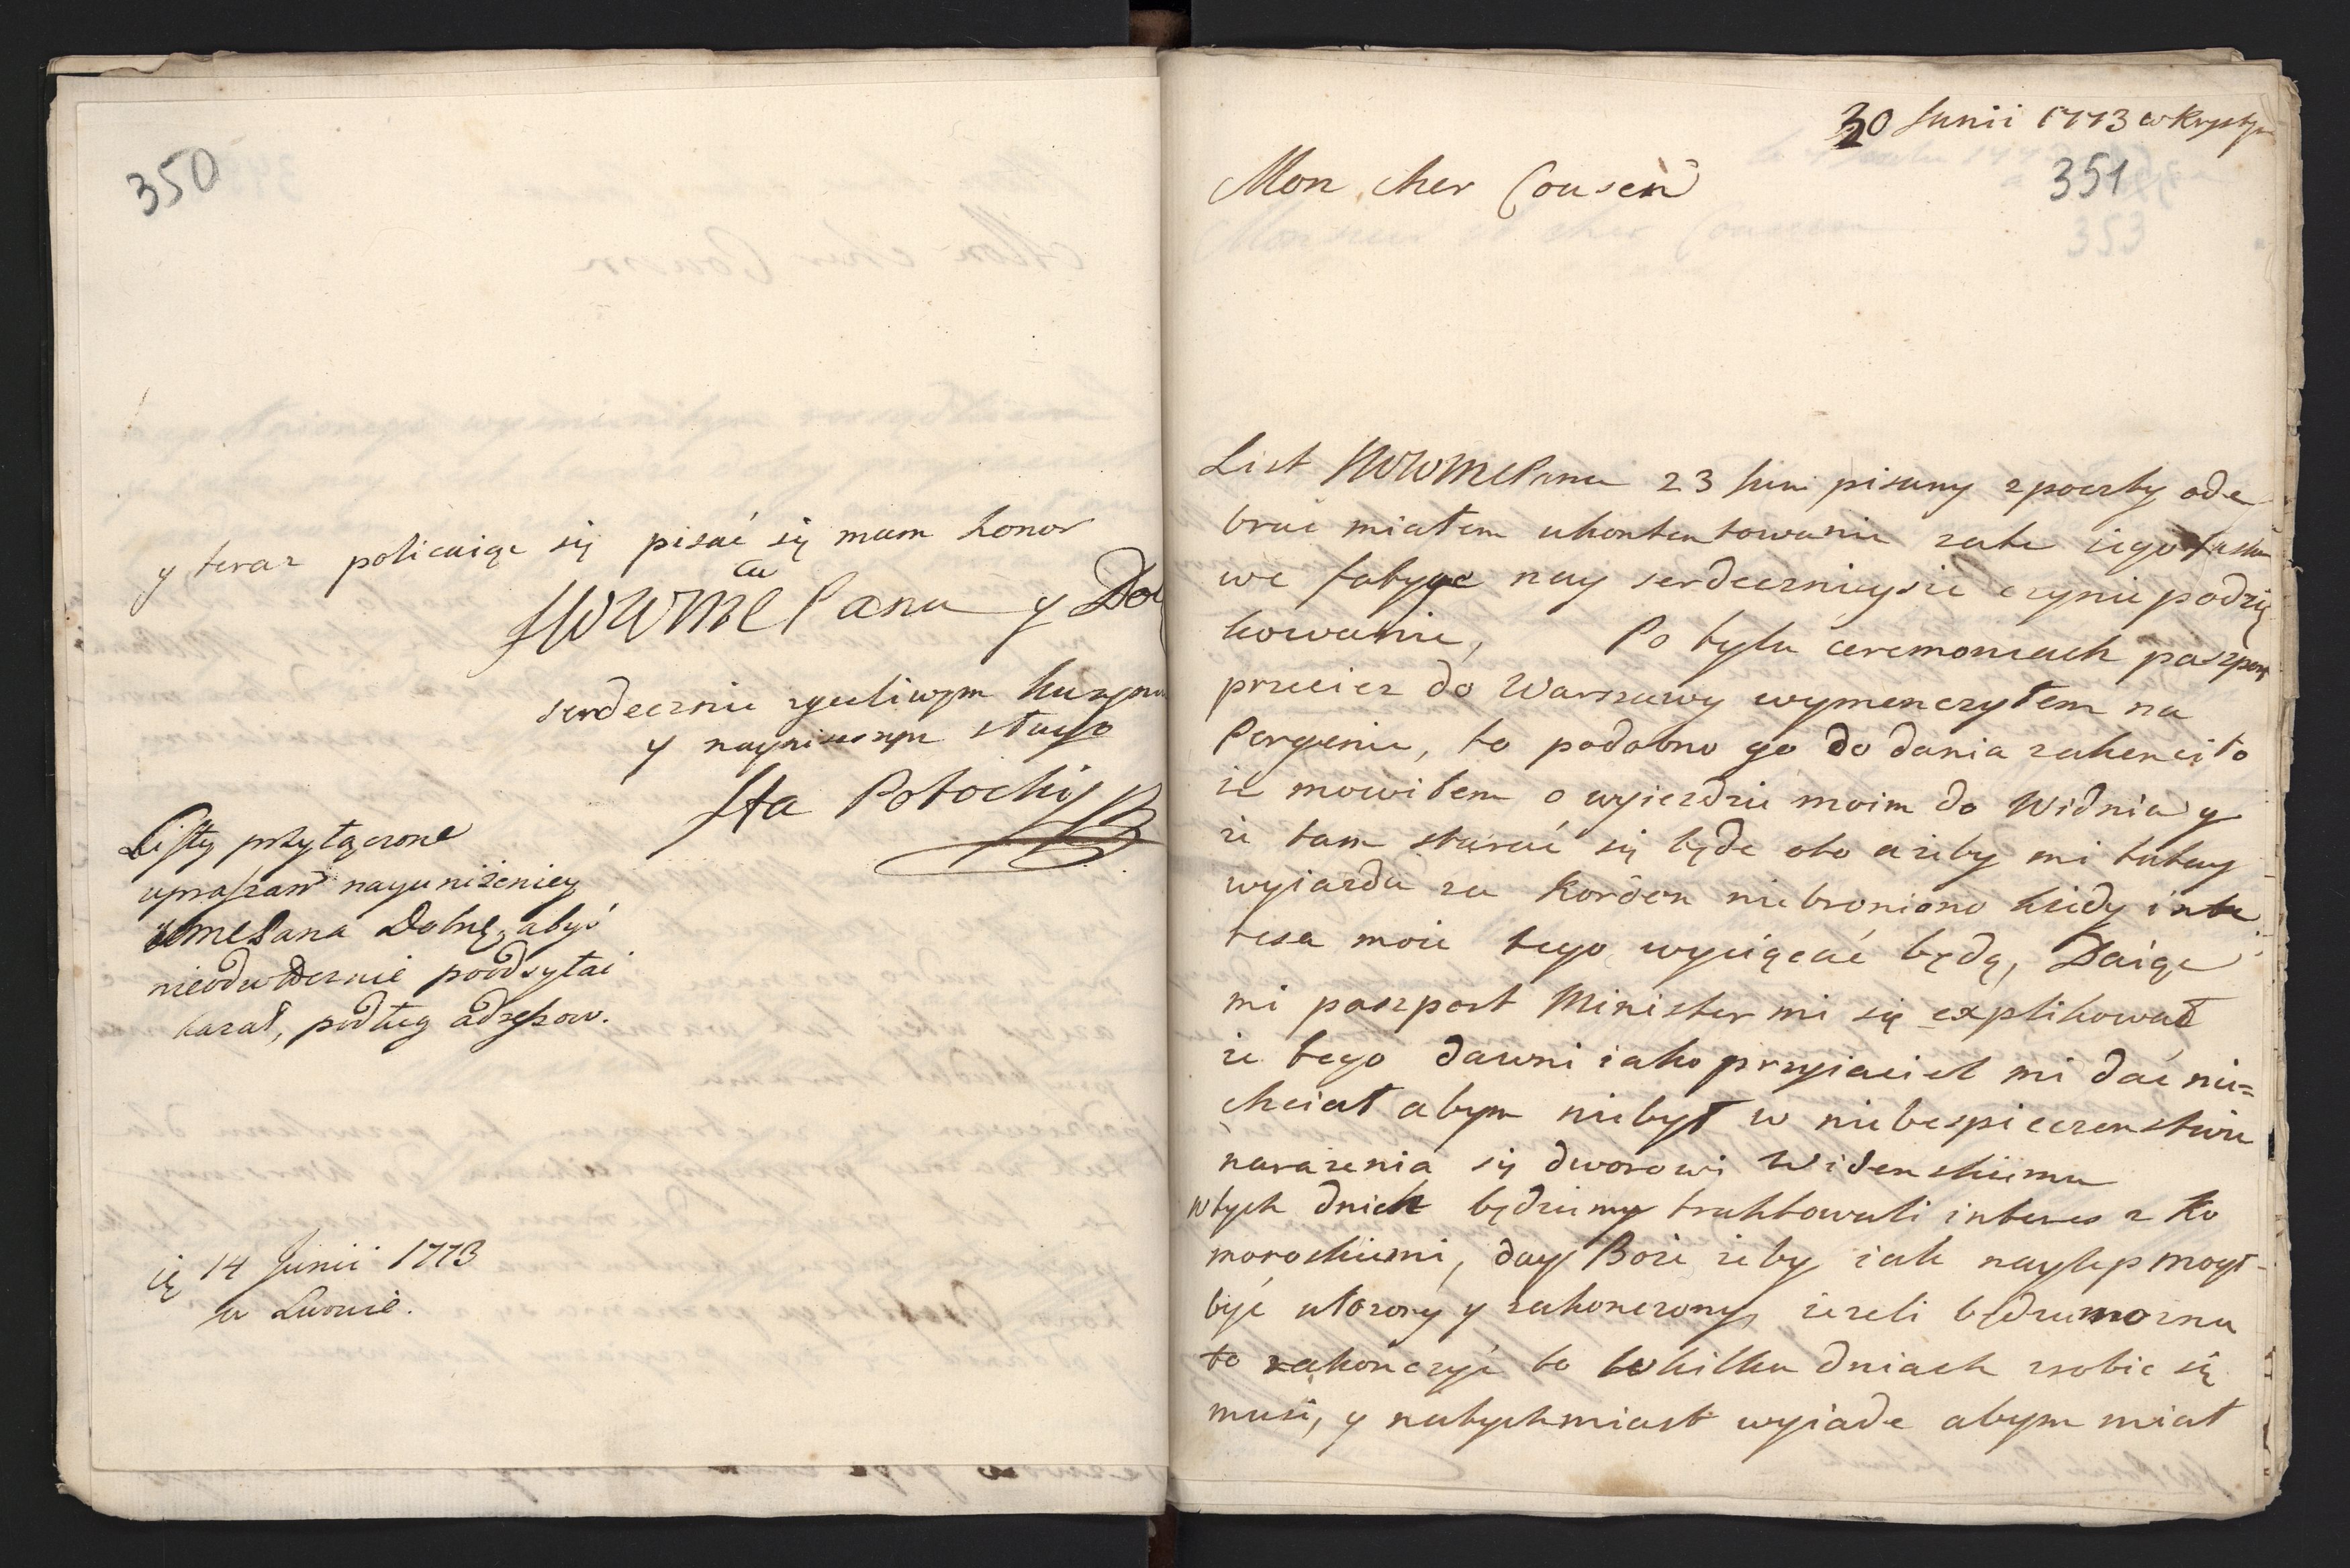 350
y teraz policaiąc się pisać się mam honor
JWWMC Pana y Do
serdecznie zycliwym kuzynem
y nayniszszym sługo
Sta Potocki
Listy przyłączone
upraszam nayuniżeniey
WMCPana Dobrę, abyś
nieodwłocznie poodsyłai
kazał, podług adressow.
14 Junii 1773
w Lwowie.
30 Junii 1773 w Krystyn
351
353
Mon cher Cousin
List JWWMCPana 23 Juni pisany z poczty ode
brać miałem ukontentowanie zate iego łaska
we fatygę nay serdecznieysie czynie podzię
kowanie, Po tylu ceremoniach paszport
przeciez do Warszawy wymenczyłem na
Pergenie, to podobno go do dania zahenciło
ze mowiłem o wyiezdzie moim do Widnia y
ze tam starać się będe oto azeby mi tutay
wyiazdu za Kordon niebroniono kiedy inte
resa moie tego wyciągać będą, Daiąc
mi paszport Minister mi się explikował
ze tego dawni iako przyiaciel mi dać nie=
chciał abym niebył w niebespieczenstwie
narazenia się dworowi Widenskiemu
W tych dniach będziemy traktowali interes z Ko
morowskiemi, day Boże zeby iak naylep mogł
być ułozony y zakonczony, iezeli będzie mozna
to zakończyć to w kilku dniach zrobic się
musi, y natychmiast wyiade abym miał